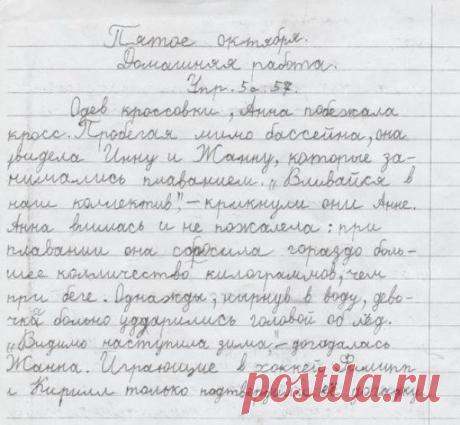 Пятое октября.
Домашняя работа.
Упр. 5а. 57.
Одев кроссовки, Анна побежала
кросс. Пробегая мимо бассейна, она
увидела Инну и Жанну, которые за-
нимались плаванием. „Вливайся в
наш коллектив", – крикнули они Анне.
Анна влилась и не пожалела: при
плавании она сбросила гораздо боль-
шее колличество килограммов, чем
при беге. Однажды, нырнув в воду, дево-
чки больно удурились головой об лёд.
„Видимо наступила зима," – догадалась
Жанна. Играющие в хоккей Филипп
и Кирилл только подтвердили её догадку
posta-rossii.ru